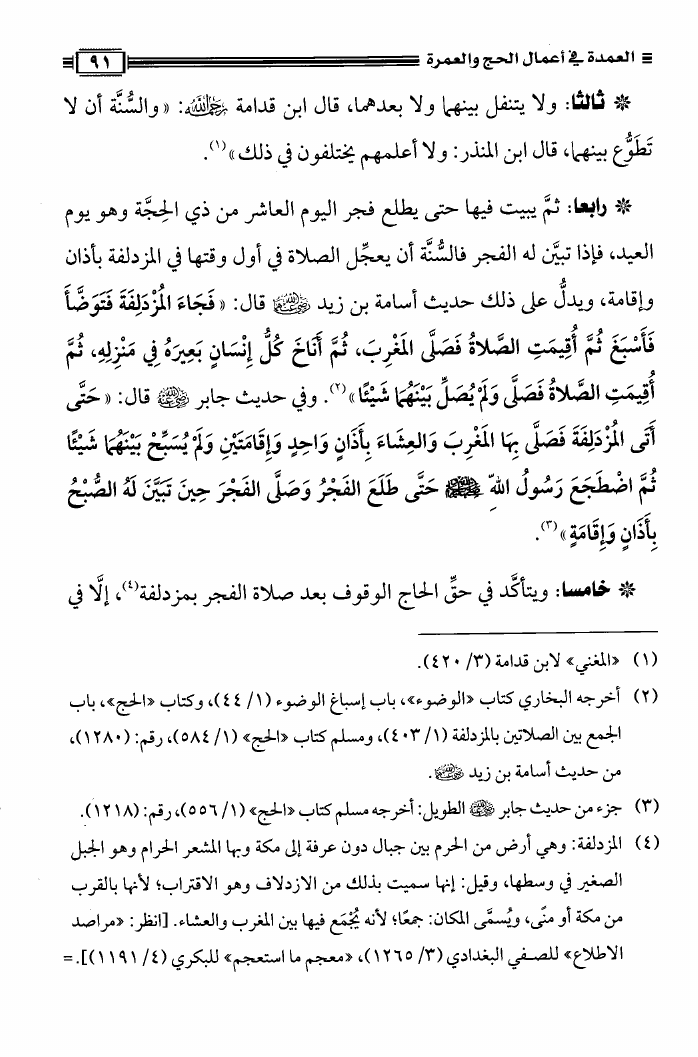 العمدة في أعمال الحج والعمرة ٩١
❊ ثالثا: ولا يتنفل بينهما ولا بعدهما، قال ابن قدامة رحمه الله: «والسُّنَّة أن لا
تَطَوُّع بينهما، قال ابن المنذر: ولا أعلمهم يختلفون في ذلك»(١).
❊ رابعا: ثمَّ يبيت فيها حتى يطلع فجر اليوم العاشر من ذي الحِجَّة وهو يوم
العيد، فإذا تبيَّن له الفجر فالسُّنَّة أن يعجِّل الصلاة في أول وقتها في المزدلفة بأذان
وإقامة، ويدلُّ على ذلك حديث أسامة بن زيد رضي الله عنهما قال: «فَجَاءَ المُزْدَلِفَةَ فَتَوَضَّأَ
فَأَسْبَغَ ثُمَّ أُقِيمَتِ الصَّلاةُ فَصَلَّى المَغْرِبَ، ثُمَّ أَنَاخَ كُلُّ إِنْسَانٍ بَعِيرَهُ فِي مَنْزِلِهِ، ثُمَّ
أُقِيمَتِ الصَّلاةُ فَصَلَّى وَلَمْ يُصَلِّ بَيْنَهُمَا شَيْئًا»(٢). وفي حديث جابر رضي الله عنه قال: «حَتَّى
أَتَى المُزْدَلِفَةَ فَصَلَّى بِهَا المَغْرِبَ وَالعِشَاءَ بِأَذَانٍ وَاحِدٍ وَإِقَامَتَيْنِ وَلَمْ يُسَبِّحْ بَيْنَهُمَا شَيْئًا
ثُمَّ اضْطَجَعَ رَسُولُ اللهِ ﷺ حَتَّى طَلَعَ الفَجْرُ وَصَلَّى الفَجْرَ حِينَ تَبَيَّنَ لَهُ الصُّبْحُ
بِأَذَانٍ وَإِقَامَةٍ»(٣).
❊ خامسا: ويتأكَّد في حقِّ الحاج الوقوف بعد صلاة الفجر بمزدلفة(٤)، إلَّا في
(١) «المغني» لابن قدامة (٣/ ٤٢٠).
(٢) أخرجه البخاري كتاب «الوضوء»، باب إسباغ الوضوء (١/ ٤٤)، وكتاب «الحج»، باب
الجمع بين الصلاتين بالمزدلفة (١/ ٤٠٣)، ومسلم كتاب «الحج» (١/ ٥٨٤)، رقم: (١٢٨٠)،
من حديث أسامة بن زيد رضي الله عنهما.
(٣) جزء من حديث جابر رضي الله عنه الطويل: أخرجه مسلم كتاب «الحج» (١/ ٥٥٦)، رقم: (١٢١٨).
(٤) المزدلفة: وهي أرض من الحرم بين جبال دون عرفة إلى مكة وبها المشعر الحرام وهو الجبل
الصغير في وسطها، وقيل: إنها سميت بذلك من الازدلاف وهو الاقتراب؛ لأنها بالقرب
من مكة أو منًى، ويُسمَّى المكان: جمعًا؛ لأنه يُجْمَع فيها بين المغرب والعشاء. [انظر: «مراصد
الاطلاع» للصفي البغدادي (٣/ ١٢٦٥)، «معجم ما استعجم» للبكري (٤/ ١١٩١)]. =